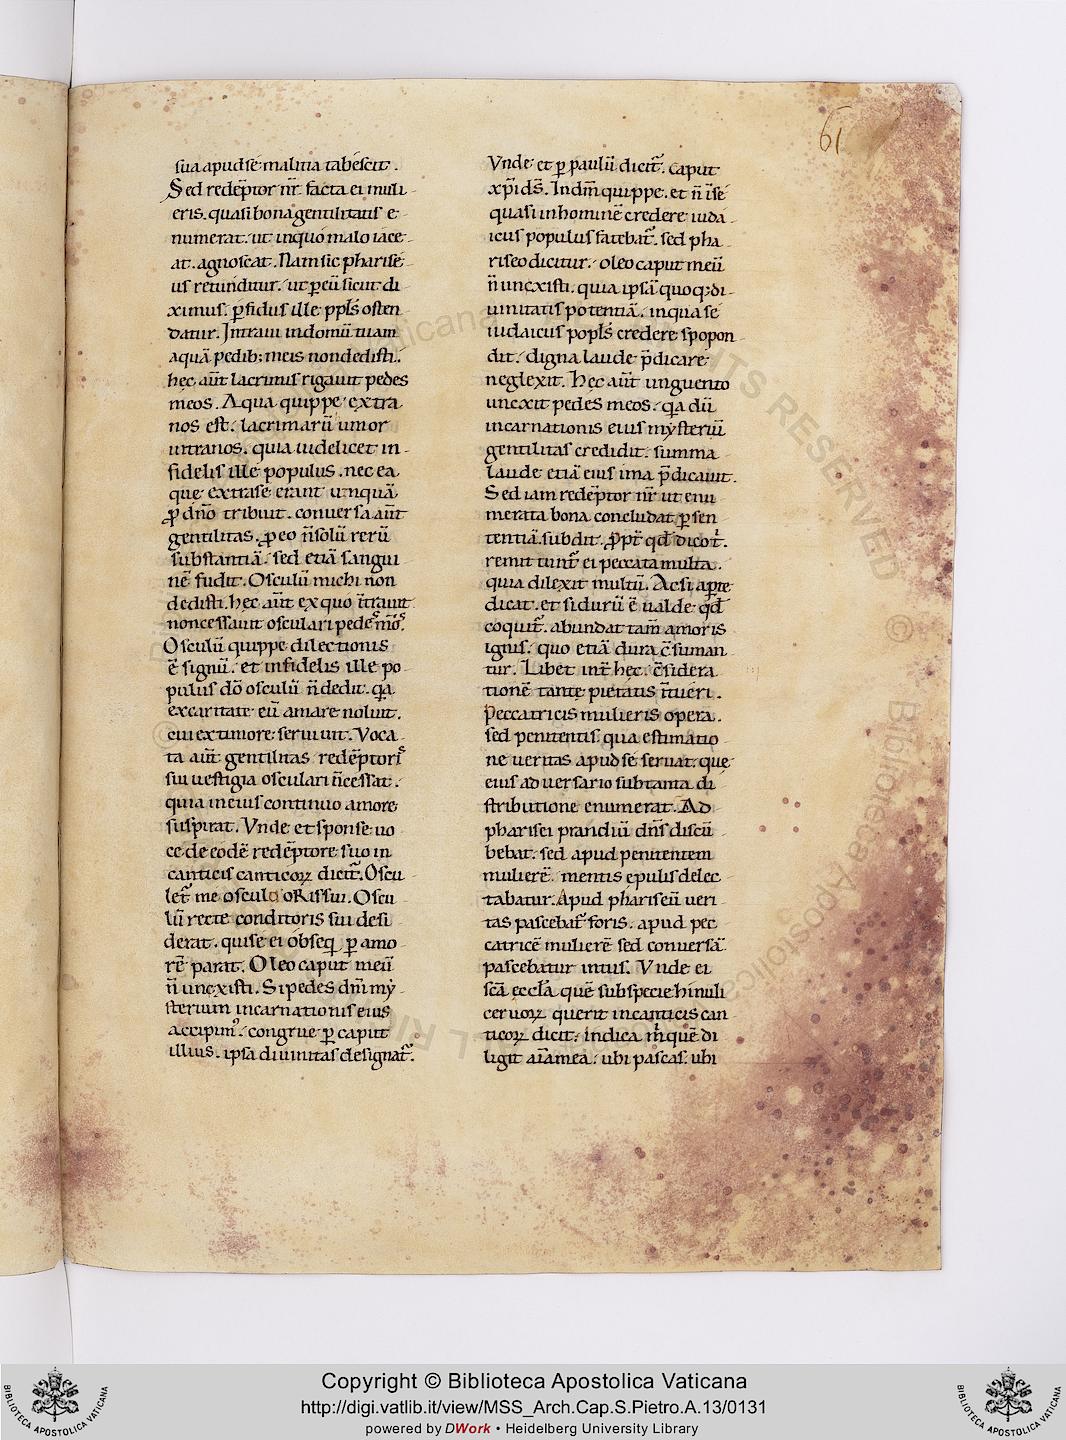 61
sua apud sé malitia tabéscit.
Sed redēptor nr̄ facta ei muli-
eris. quasi bona gentilitatis e-
numerat. ut in quo malo iace-
at. agnoscat. Nam sic pharisę-
us retunditur. ut ꝑ eū sicut di-
ximus. ꝑfidus ille ppl̄s osten-
datur. Intraui in domū tuam
aquā pedib; meis non dedisti.
hęc aūt lacrimis rigauit pedes
meos. Aqua quippe extra
nos est. lacrimarū umor
intranos. quia uidelicet in-
fidelis ille populus. nec ea
que extra se erant unquā
ꝓ dn̄o tribuit. conuersa aūt
gentilitas. ꝓ eo n̄ solū rerū
substantiā. sed etiā sangui
nē fudit. Osculū michi non
dedisti. hęc aūt ex quo īntrauit
non cessauit osculari pedes m̄os.
Osculū quippe dilectionis
ē signū. et infidelis ille po
pulus dō osculū n̄ dedit. qa
ex caritate eū amare noluit.
cui ex timore seruiuit. Voca-
ta aūt gentilitas redēptoris
sui uestigia osculari n̄ cessat.
quia in eius continuo amore
suspirat. Vnde et sponse uo
ce de eodē redēptore suo in
canticis canticoꝝ dicit̄. Oscu
let̄ me osculo oris sui. Oscu
lū recte conditoris sui desi
derat. que se ei obseq̄ ꝑ amo-
rē parat. Oleo caput meū
n̄ unxisti. Si pedes dn̄i my-
sterium incarnationis eius
accipim᾽. congrue ꝑ caput
illius. ipsa diuinitas designat̄.
Vnde et ꝑ paulū dicit̄. caput
xp̄i d̄s. In dm̄ quippe. et n̄ in sé
quasi in hominē credere iuda-
icus populus fatebat̄. sed pha-
riseo dicitur. oleo caput meū
n̄ unxisti. quia ipsā quoq; di-
uinitatis potentiā. in qua sé
iudaicus popl̄s credere spopon-
dit. digna laude p̄dicare
neglexit. Hęc aūt unguento
unxit pedes meos. qa dū
incarnationis eius mysteriū
gentilitas credidit. summa
laude etiā eius ima p̄dicauit.
Sed iam redēptor nr̄ ut enu
merata bona concludat ꝑ sen
tentiā. subdit. ꝓpt̄ qd̄ dico t̄.
remittunt̄ ei peccata multa.
quia dilexit multū. Ac si aperte
dicat. et si durū ē ualde qd̄
coquit̄. abundat tam̄ amoris
ignis. quo etiā dura c̄suman
tur. Libet int̄ hęc c̄sidera
tionē tantę pietatis īntuéri.
Peccatricis mulieris opera.
sed penitentis qua estimatio
ne ueritas apud se seruat. que
eius aduersario sub tanta di
stributione enumerat. Ad
pharisei prandiū dn̄s discū
bebat. sed apud penitentem
mulierē. mentis epulis delec
tabatur. Apud phariseū ueri
tas pascebat̄ foris. apud pec
catricē mulierē sed conuersā
pascebatur intus. Vnde ei
sc̄a ęccl̄a quē sub specie hinuli
ceruoꝝ querit in canticis can
ticoꝝ dicit. indica m̄ quē di
ligit an̄a mea. ubi pascas. ubi
Copyright © Biblioteca Apostolica Vaticana
http://digi.vatlib.it/view/MSS_Arch.Cap.S.Pietro.A.13/0131
powered by DWork • Heidelberg University Library